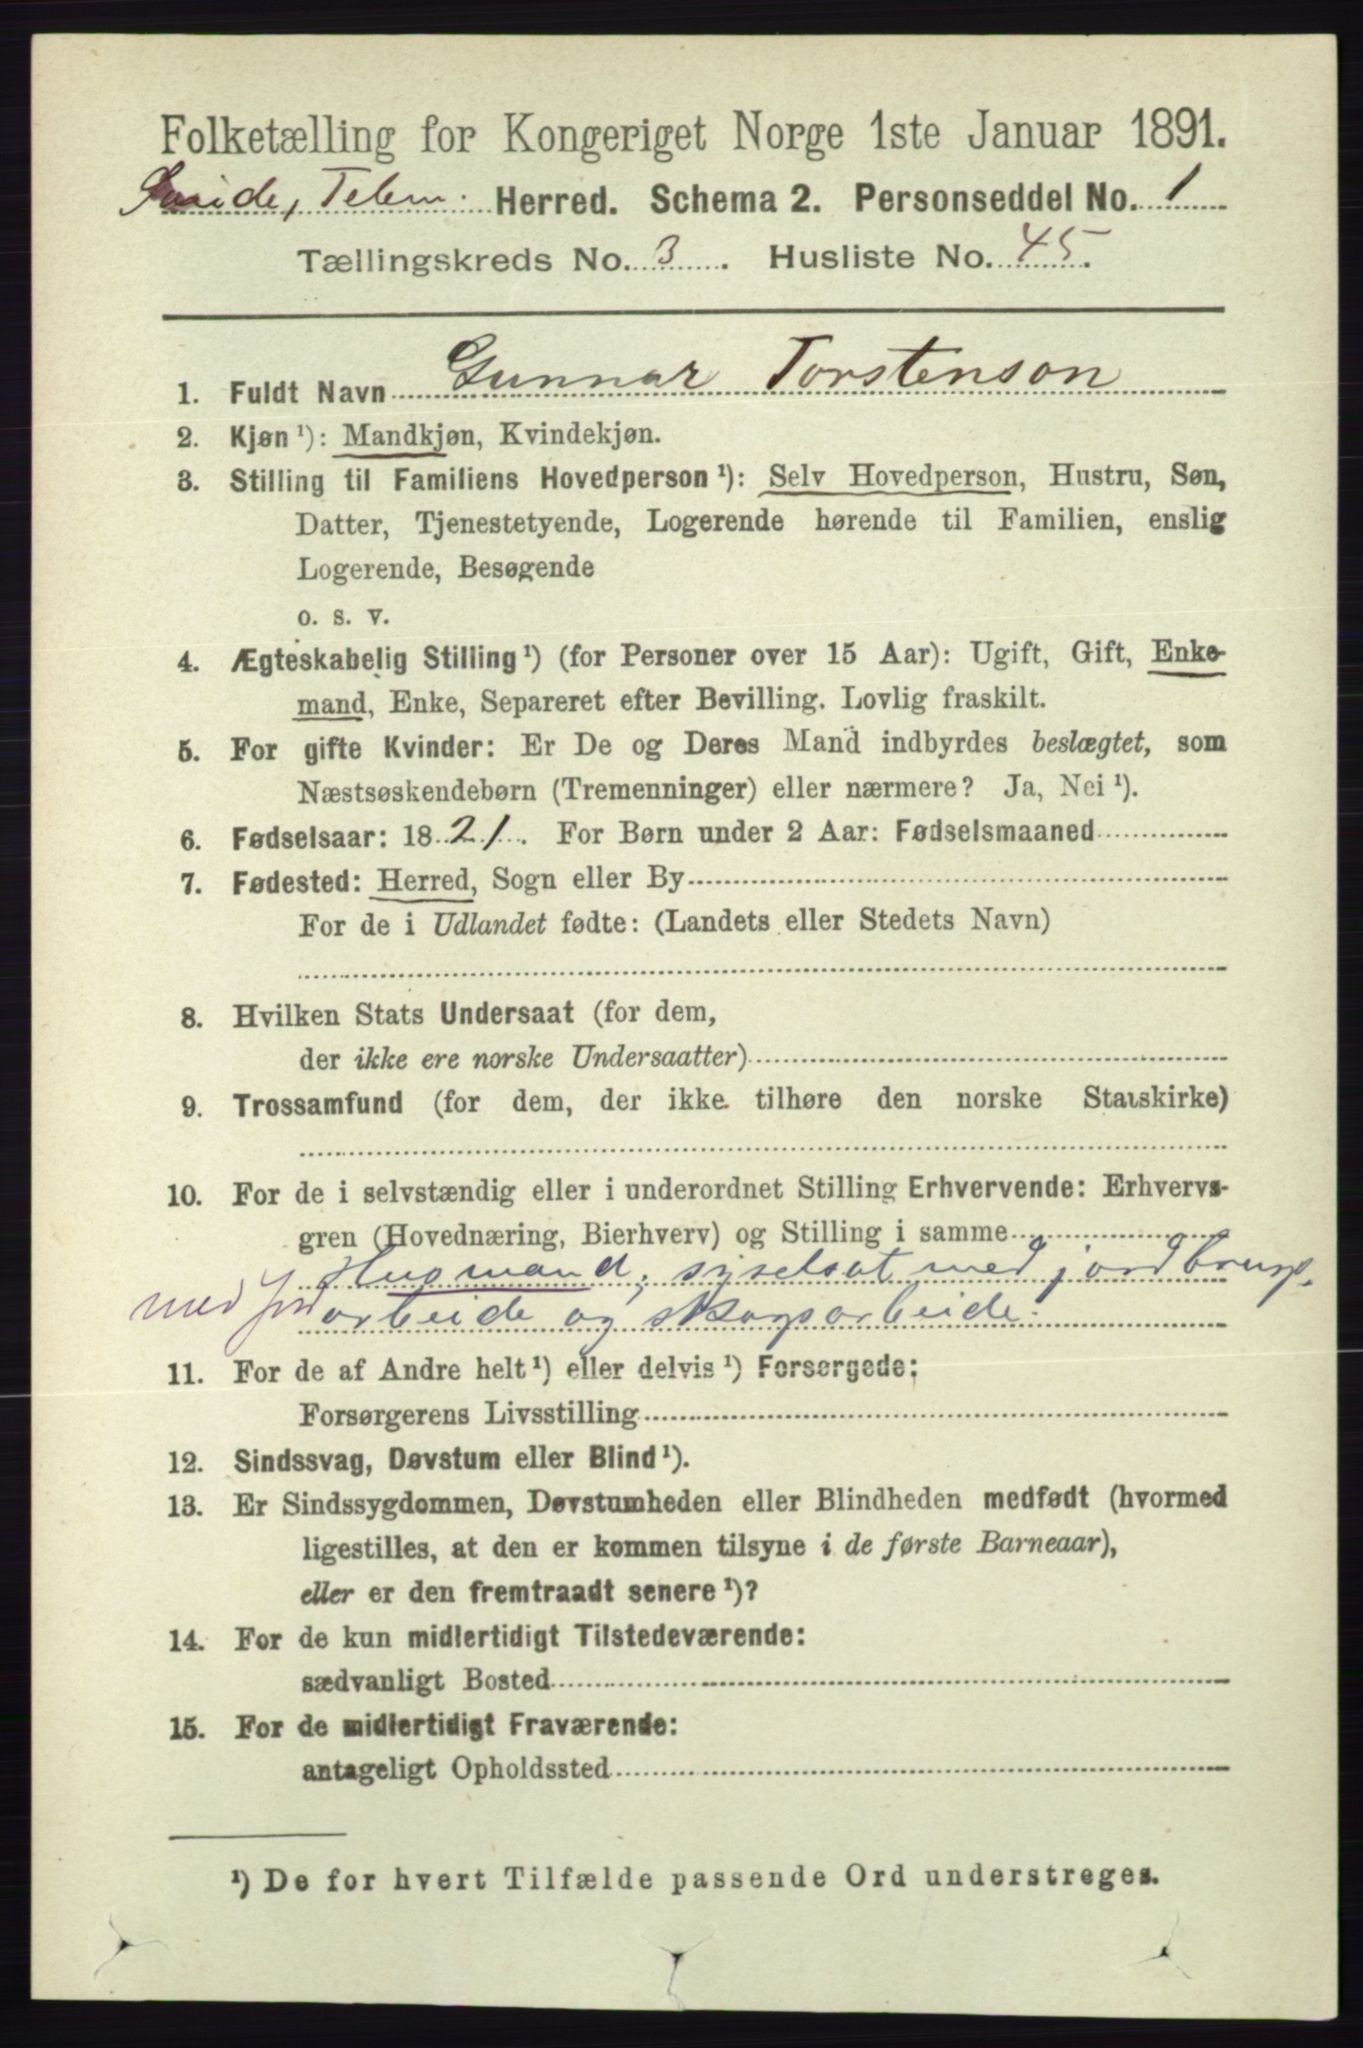 Folketælling for Kongeriget Norge 1ste Januar 1891.
Telem. Herred. Schema 2. Personseddel No. 1
Tællingskreds No. 3. Husliste No. 45.
1. Fuldt Navn Gunnar Torstenson
2. Kjøn¹): Mandkjøn, Kvindekjøn.
3. Stilling til Familiens Hovedperson¹): Selv Hovedperson, Hustru, Søn,
Datter, Tjenestetyende, Logerende hørende til Familien, enslig
Logerende, Besøgende
o. s. v.
4. Ægteskabelig Stilling¹) (for Personer over 15 Aar): Ugift, Gift, Enke-
mand, Enke, Separeret efter Bevilling. Lovlig fraskilt.
5. For gifte Kvinder: Er De og Deres Mand indbyrdes beslægtet, som
Næstsøskendebørn (Tremenninger) eller nærmere? Ja, Nei¹).
6. Fødselsaar: 1821. For Børn under 2 Aar: Fødselsmaaned
7. Fødested: Herred, Sogn eller By
For de i Udlandet fødte: (Landets eller Stedets Navn)
8. Hvilken Stats Undersaat (for dem,
der ikke ere norske Undersaatter)
9. Trossamfund (for dem, der ikke tilhøre den norske Statskirke)
10. For de i selvstændig eller i underordnet Stilling Erhvervende: Erhvervs-
gren (Hovednæring, Bierhverv) og Stilling i samme
Husmand, syselsat med jordbrugs-
med jord arbeide og skogsarbeide.
11. For de af Andre helt¹) eller delvis¹) Forsørgede:
Forsørgerens Livsstilling
12. Sindssvag, Døvstum eller Blind¹).
13. Er Sindssygdommen, Døvstumheden eller Blindheden medfødt (hvormed
ligestilles, at den er kommen tilsyne i de første Barneaar),
eller er den fremtraadt senere¹)?
14. For de kun midlertidigt Tilstedeværende:
sædvanligt Bosted
15. For de midlertidigt Fraværende:
antageligt Opholdssted
¹) De for hvert Tilfælde passende Ord understreges.